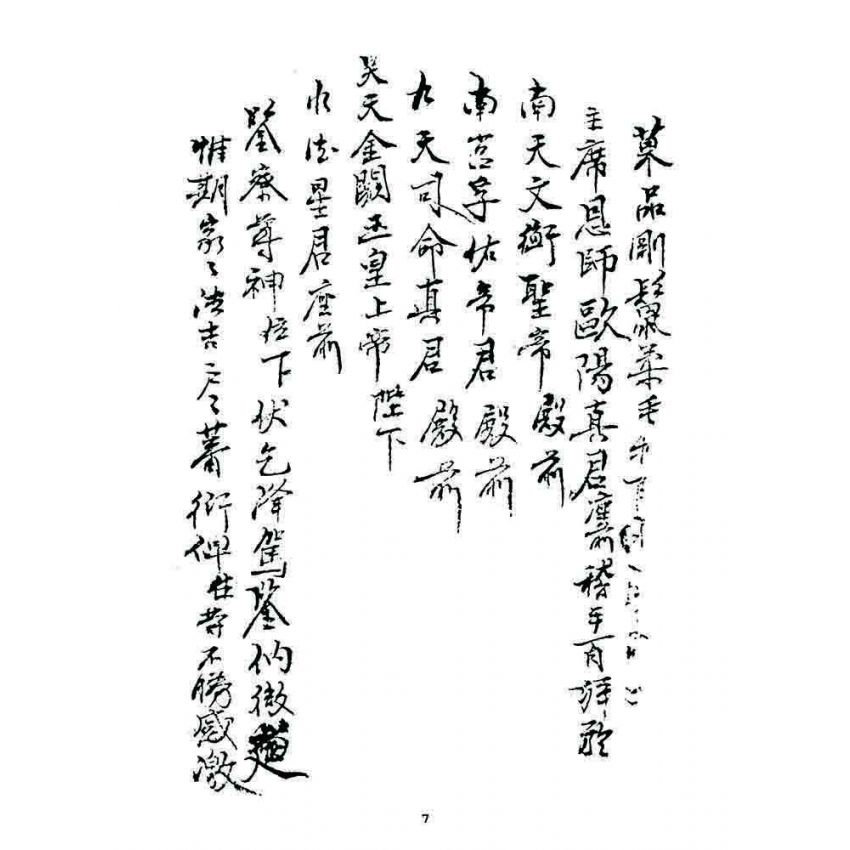 菓品剛鬣葉毛
主席恩師歐陽真君座前稽首百拜於
南天文衡聖帝殿前
南宮孚佑帝君殿前
九天司命真君殿前
昊天金闕玉皇上帝陛下
水德星君座前
鑒察尊神位下伏乞降駕鑒納微
惟期家々法吉戶々蕃衍俾世等不勝感激
7